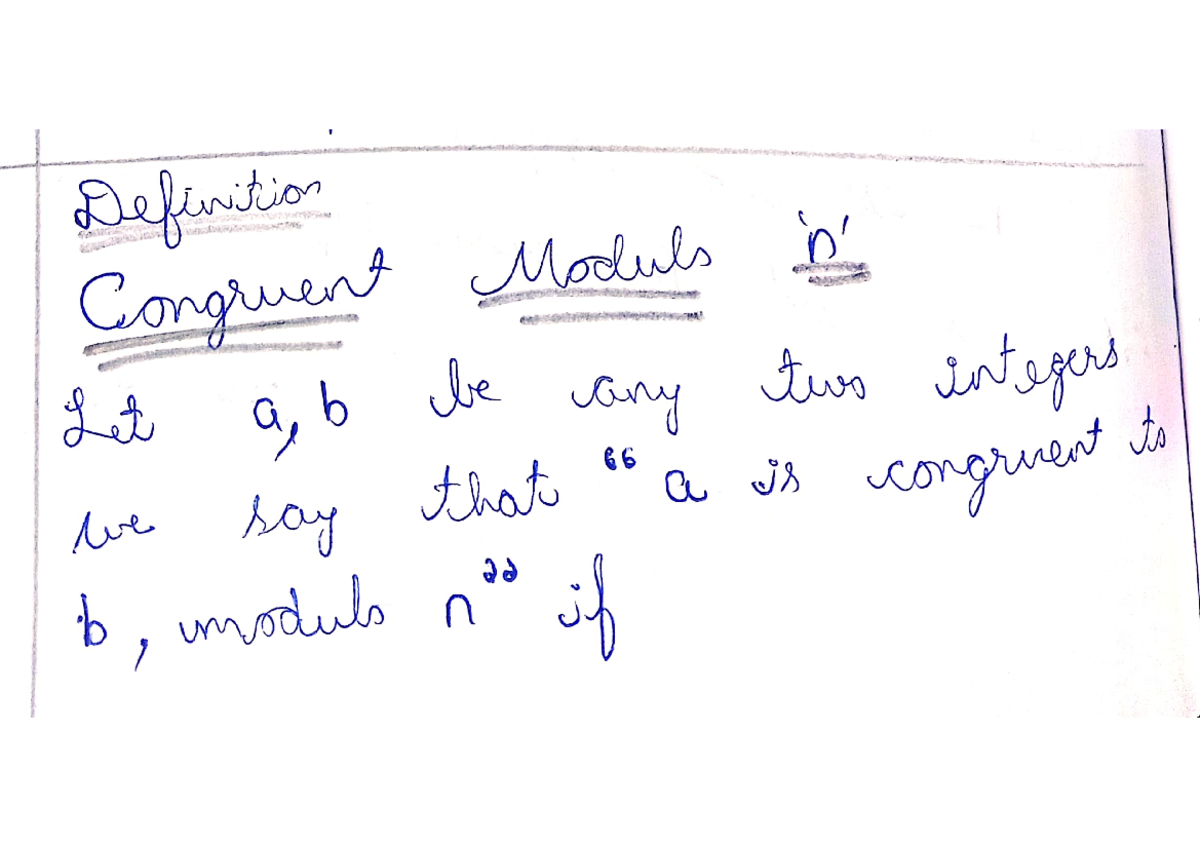 Definition
Congruent Modulo 'n'
Let a, b be any two integers
we say that “ a is congruent to
b, modulo n” if